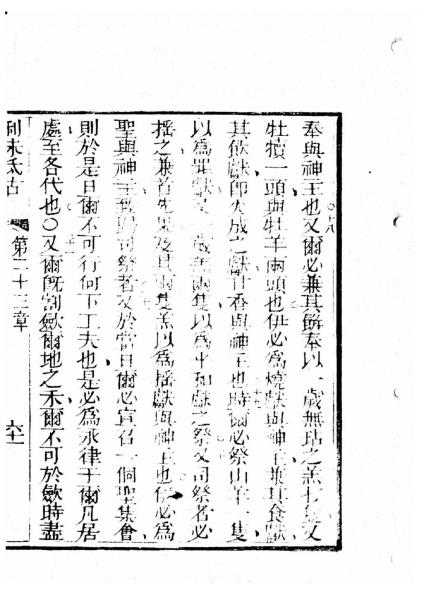 奉與神主也又爾必兼其餅奉以一歲無玷之羔七隻又
牡犢一頭與牡羊兩頭也伊必爲燒獻與神主兼其食獻
其飲獻即火成之獻甘香與神主也時爾必祭山羊一隻
以爲罪獻又一歲羔兩隻以爲平和獻之祭又司祭者必
搖之兼首先果及其兩隻羔以爲搖獻與神主也伊必爲
聖與神主致賜司祭者又於當日爾必宣召一個聖集會
則於是日爾不可行何下工夫也是必爲永律于爾凡居
處至各代也〇又爾旣割斂爾地之禾爾不可於斂時盡
利未氏古 第二十三章 六十一